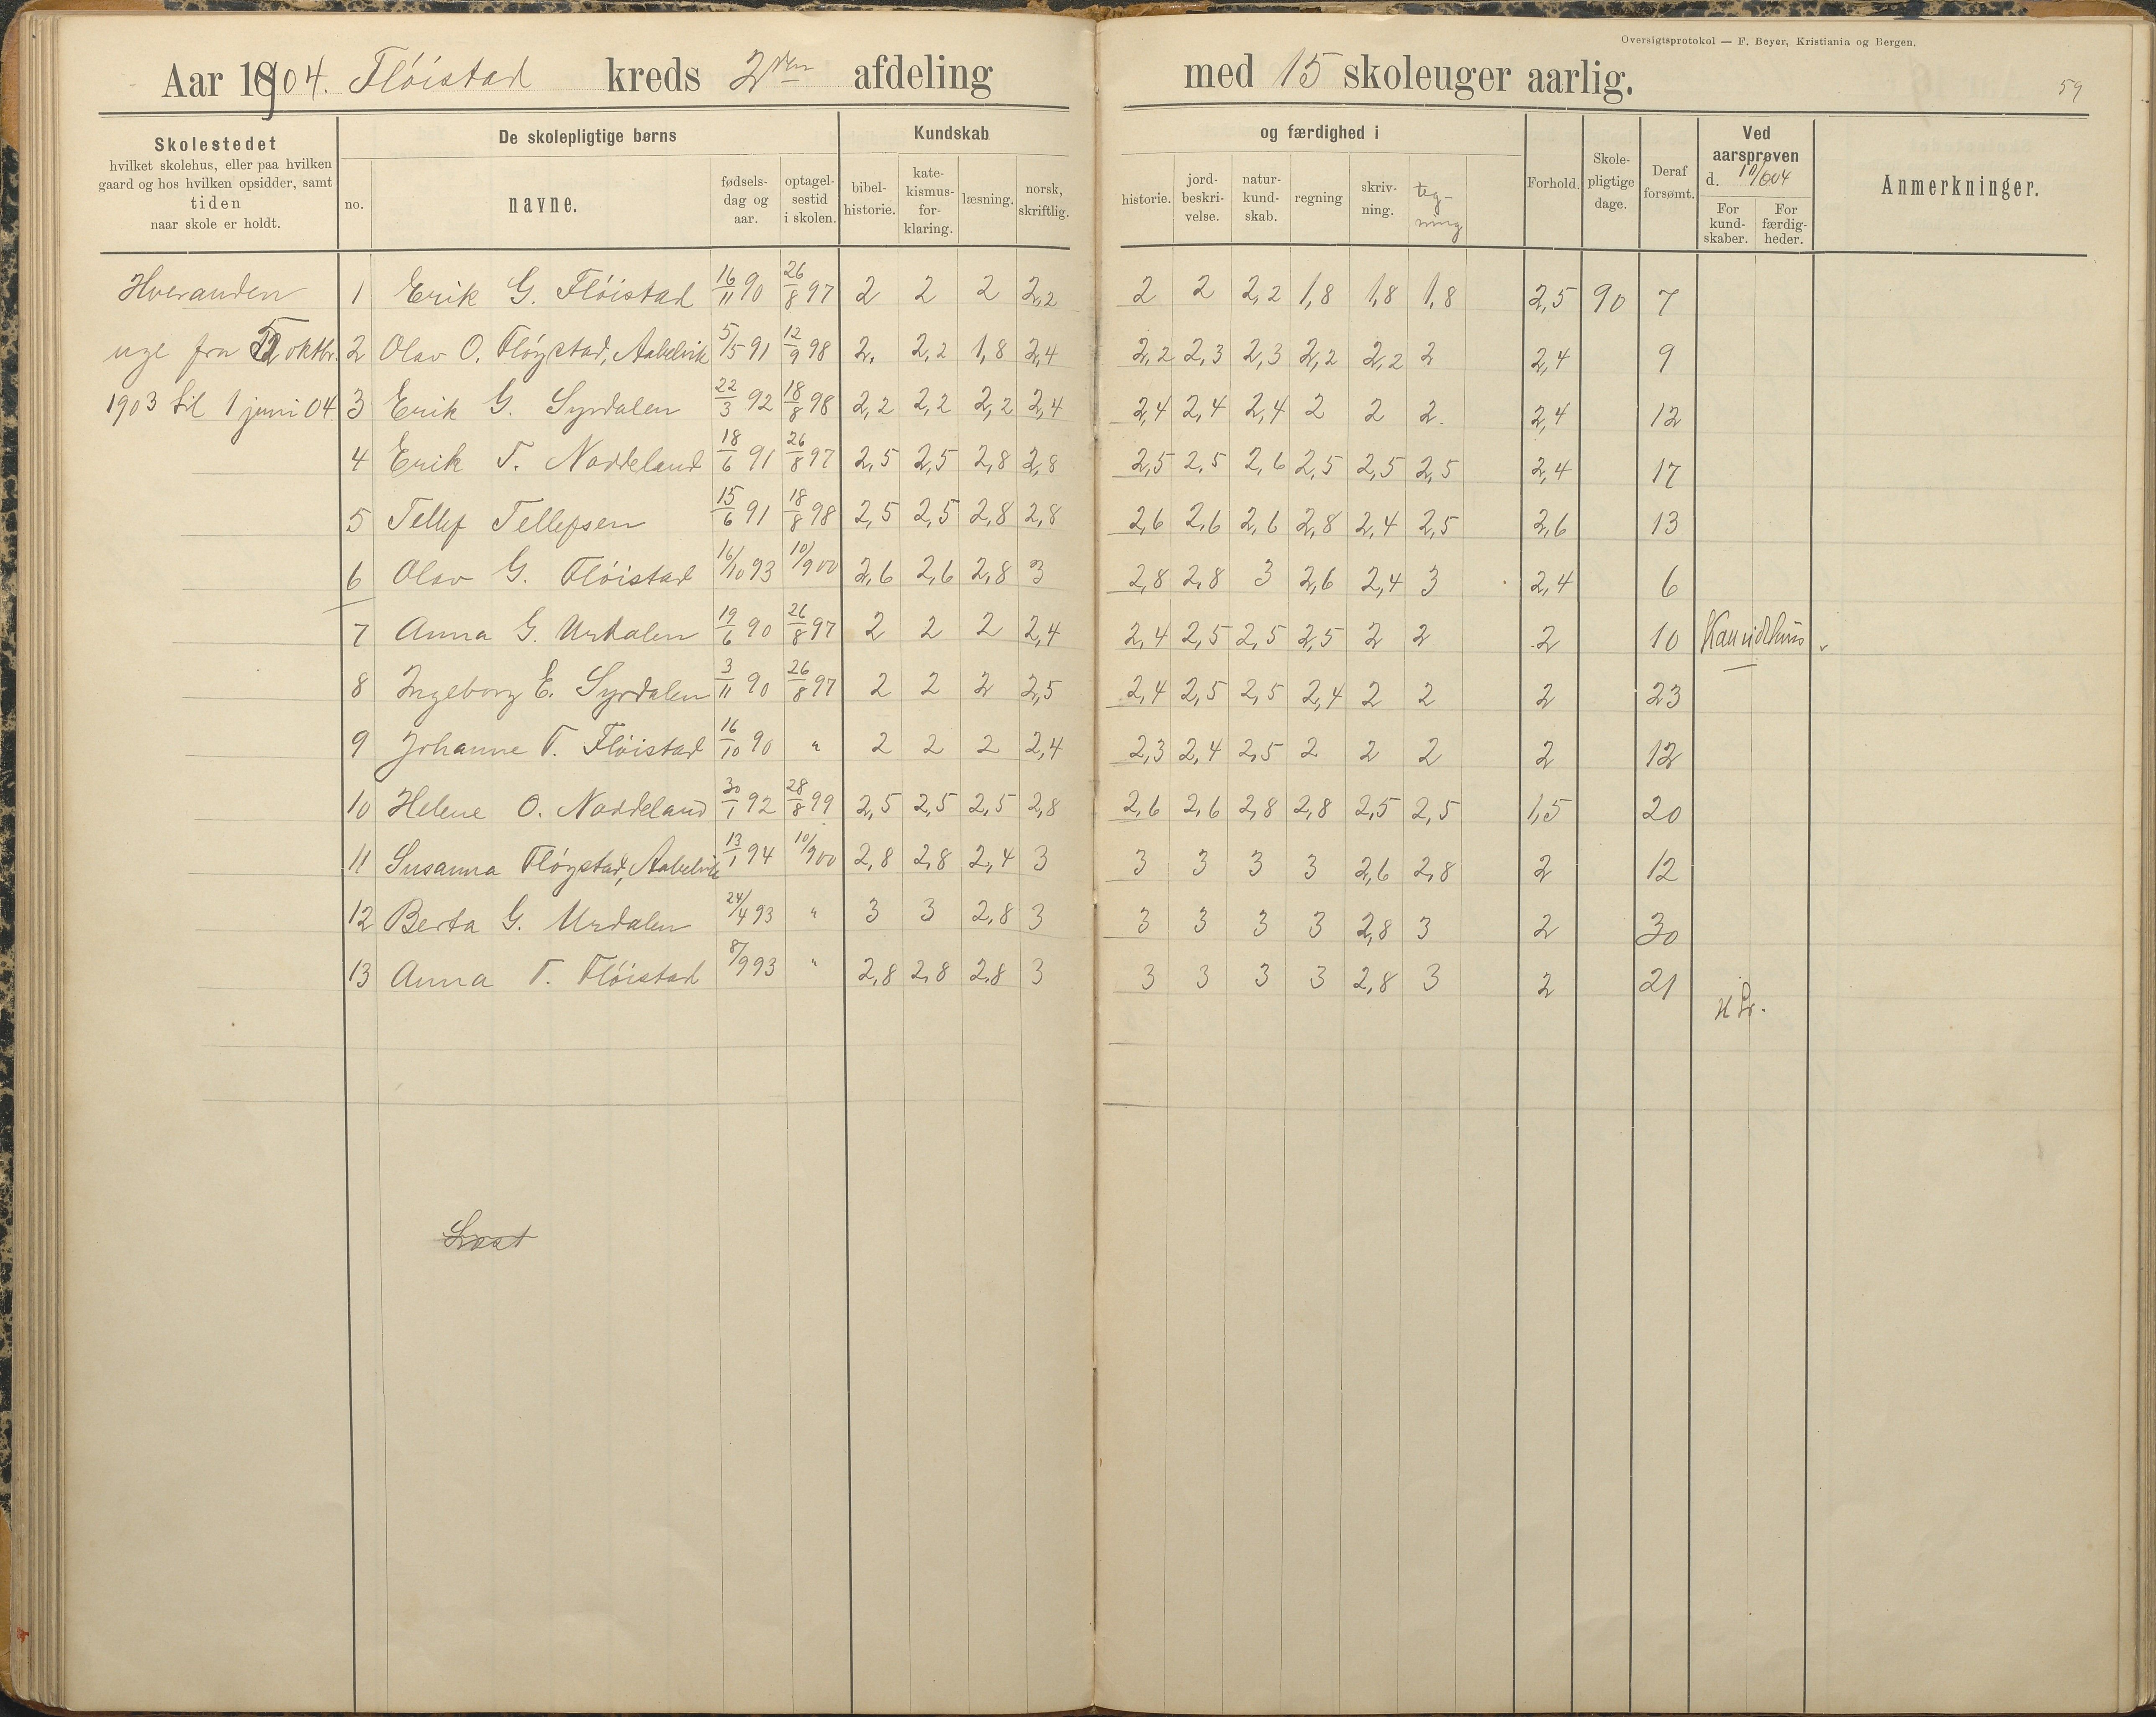 Oversigtsprotokol — F. Beyer, Kristiania og Bergen.
Aar 1904. Flöistad kreds 2den afdeling med 15 skoleuger aarlig.
59
Skolestedet
hvilket skolehus, eller paa hvilken
gaard og hos hvilken opsidder, samt
tiden
naar skole er holdt.
De skolepligtige børns
no.
navne.
fødsels-
dag og
aar.
optagel-
sestid
i skolen.
Kundskab
bibel-
historie.
kate-
kismus-
for-
klaring.
læsning.
norsk,
skriftlig.
og færdighed i
historie.
jord-
beskri-
velse.
natur-
kund-
skab.
regning
skriv-
ning.
teg-
ning
Forhold.
Skole-
pligtige
dage.
Deraf
forsømt.
Ved
aarsprøven
d. 10/6 04
For
kund-
skaber.
For
færdig-
heder.
Anmerkninger.
Hveranden 1 Erik G. Flöistad 16/11 90 26/8 97 2 2 2 2,2 2 2 2,2 1,8 1,8 1,8 2,5 90 7
uge fra oktbr. 2 Olav O. Fløystad, Aabelvik 5/5 91 12/9 98 2. 2,2 1,8 2,4 2,2 2,3 2,3 2,2 2,2 2 2,4 9
1903 til 1 juni 04. 3 Erik G. Syrdalen 22/3 92 18/8 98 2,2 2,2 2,2 2,4 2,4 2,4 2,4 2 2 2. 2,4 12
4 Erik T. Noddeland 18/6 91 26/8 97 2,5 2,5 2,8 2,8 2,5 2,5 2,6 2,5 2,5 2,5 2,4 17
5 Tellef Tellefsen 15/6 91 18/8 98 2,5 2,5 2,8 2,8 2,6 2,6 2,6 2,8 2,4 2,5 2,6 13
6 Olav G. Flöistad 16/10 93 10/9 00 2,6 2,6 2,8 3 2,8 2,8 3 2,6 2,4 3 2,4 6
7 Anna G. Urdalen 19/6 90 26/8 97 2 2 2 2,4 2,4 2,5 2,5 2,5 2 2 2 10
8 Ingeborg E. Syrdalen 3/11 90 26/8 97 2 2 2 2,5 2,4 2,5 2,5 2,4 2 2 2 23
9 Johanne T. Flöistad 16/10 90 " 2 2 2 2,4 2,3 2,4 2,5 2 2 2 2 12
10 Helene O. Noddeland 30/1 92 28/8 99 2,5 2,5 2,5 2,8 2,6 2,6 2,8 2,8 2,5 2,5 1,5 20
11 Susanna Fløystad, Aabelvik 13/1 94 10/9 00 2,8 2,8 2,4 3 3 3 3 3 2,6 2,8 2 12
12 Berta G. Urdalen 24/4 93 " 3 3 2,8 3 3 3 3 3 2,8 3 2 30
13 Anna T. Flöistad 8/9 93 " 2,8 2,8 2,8 3 3 3 3 3 2,8 3 2 21